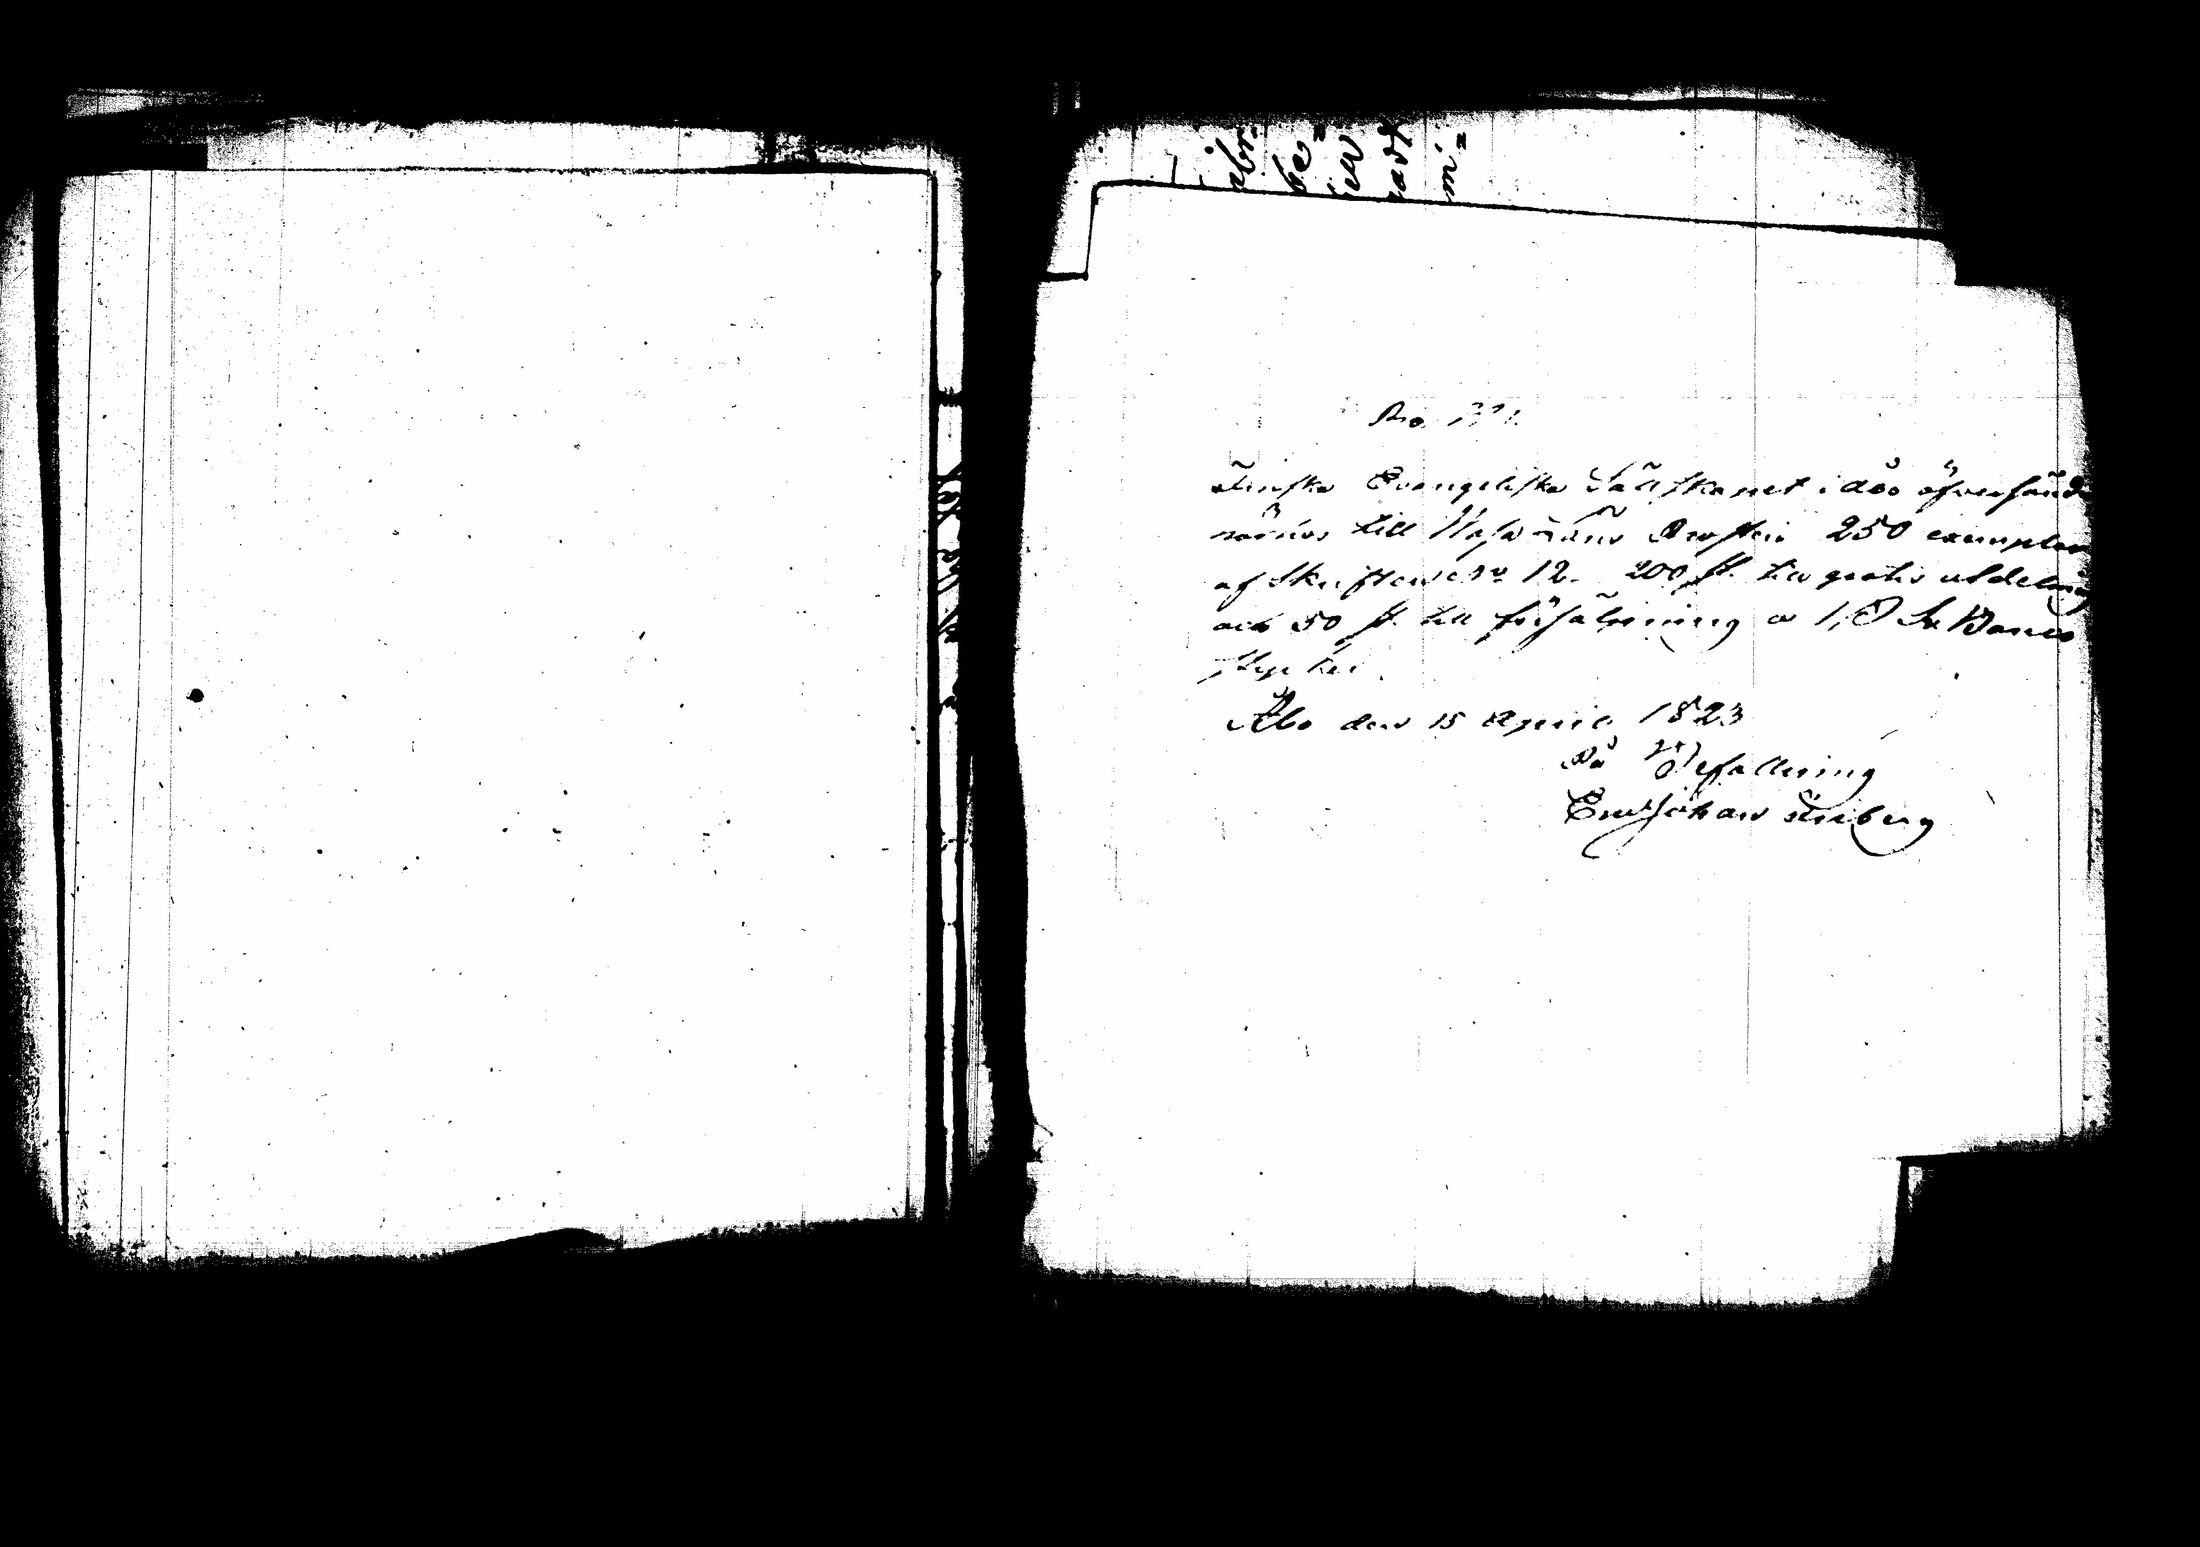 Finska Evangeliska Sällskapet i Åbo öfversänd
till Wasa Läns Prosteri 250 exemplar
af Skriften No 12. 200 st. till gratis utdelning
och 50 st. till försäljning a 1, ß Sv Banco
stycket.
Åbo den 15 April 1823
På Befallning
Ernst Johan Friberg